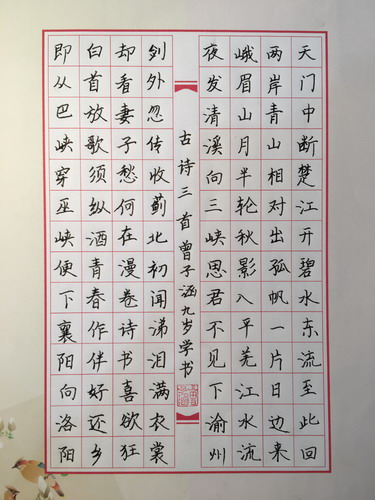 天门中断楚江开碧水东流至此回
两岸青山相对出孤帆一片日边来
峨眉山月半轮秋影入平羌江水流
夜发清溪向三峡思君不见下渝州
古诗三首曾子涵九岁学书
剑外忽传收蓟北初闻涕泪满衣裳
却看妻子愁何在漫卷诗书喜欲狂
白首放歌须纵酒青春作伴好还乡
即从巴峡穿巫峡便下襄阳向洛阳